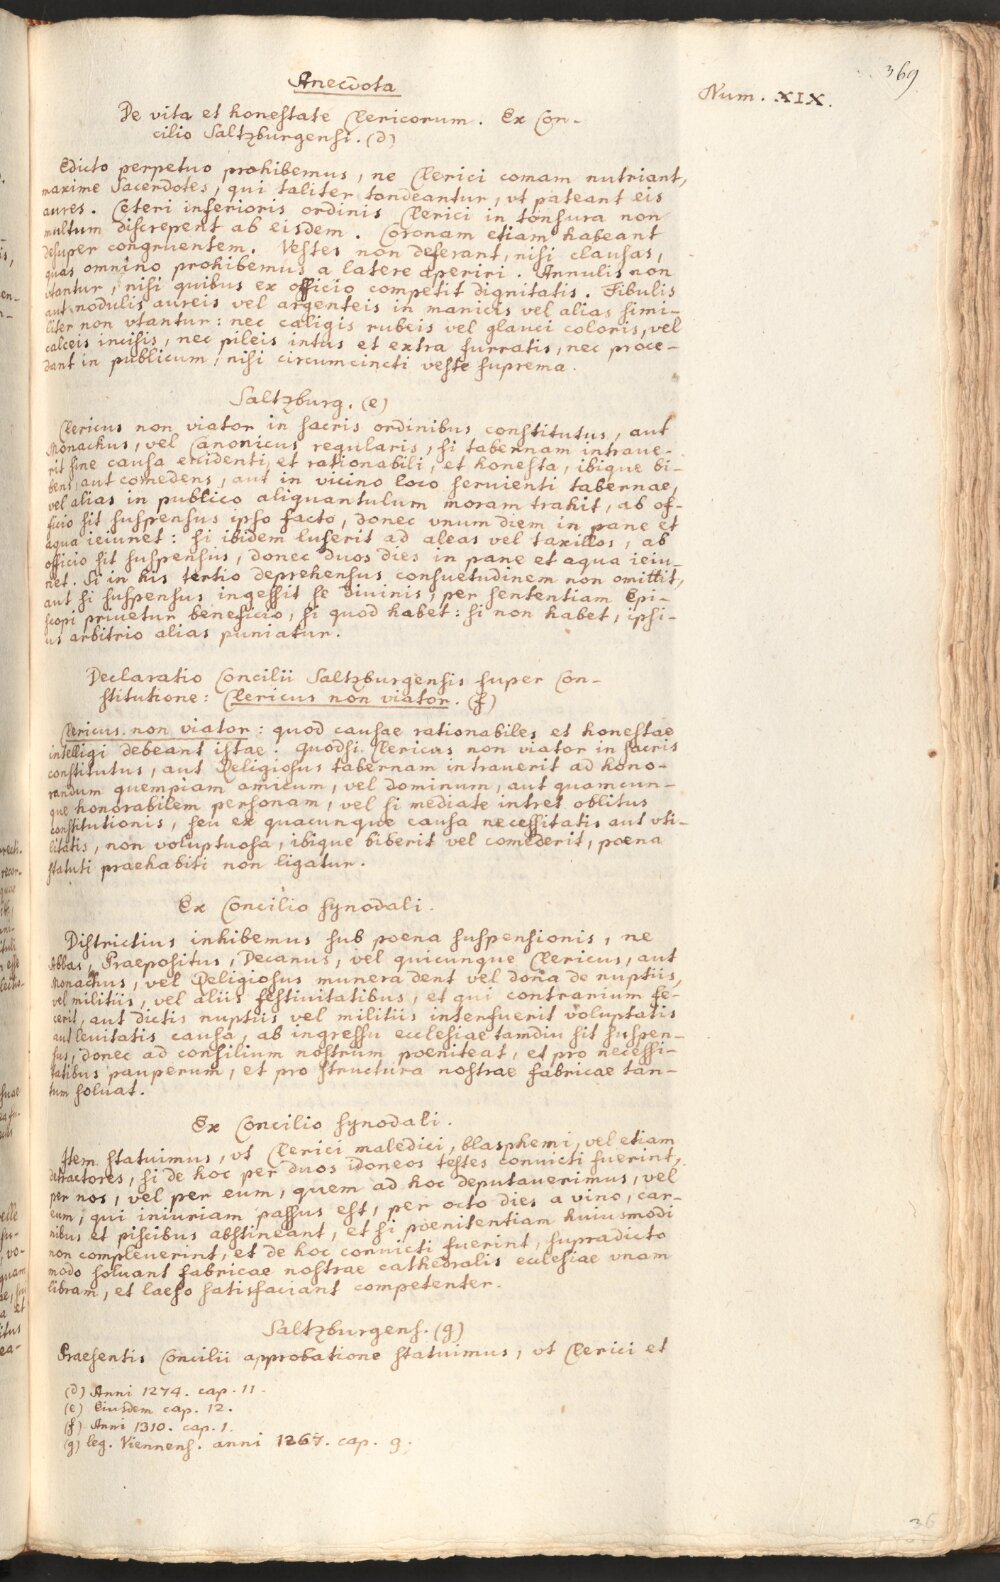 369
Anecdota
Num. XIX.
De vita et honestate Clericorum. Ex Con-
cilio Saltzburgensi. (d)
Edicto perpetuo prohibemus, ne Clerici comam nutriant,
maxime Sacerdotes, qui taliter tondeantur, vt pateant eis
aures. Ceteri inferioris ordinis Clerici in tonsura non
multum discrepent ab eisdem. Coronam etiam habeant
desuper congruentem. Vestes non deferant, nisi clausas,
quas omnino prohibemus a latere aperiri. Annulis non
vtantur, nisi quibus ex officio competit dignitatis. Fibulis
aut nodulis aureis vel argenteis in manicis vel alias simi-
liter non vtantur: nec caligis rubeis vel glauci coloris, vel
calceis incisis, nec pileis intus et extra furratis, nec proce-
dant in publicum, nisi circumcincti veste suprema.
Saltzburg. (e)
Clericus non viator in sacris ordinibus constitutus, aut
Monachus, vel Canonicus regularis, si tabernam intraue-
rit sine causa euidenti, et rationabili, et honesta, ibique bi-
bens, aut comedens, aut in vicino loco seruienti tabernae,
vel alias in publico aliquantulum moram trahit, ab of-
ficio sit suspensus ipso facto, donec vnum diem in pane et
aqua ieiunet: si ibidem luserit ad aleas vel taxillos, ab
officio sit suspensus, donec duos dies in pane et aqua ieiu-
net. Si in his tertio deprehensus consuetudinem non omittit,
aut si suspensus ingessit se diuinis, per sententiam Epi-
scopi priuetur beneficio, si quod habet: si non habet, ipsi-
us arbitrio alias puniatur.
Declaratio Concilii Saltzburgensis super Con-
stitutione: Clericus non viator. (f)
Clericus non viator: quod causae rationabiles et honestae
intelligi debeant istae. Quodsi Clericus non viator in sacris
constitutus, aut Religiosus tabernam intrauerit ad hono-
randum quempiam amicum, vel dominum, aut quamcun-
que honorabilem personam, vel si mediate intret oblitus
constitutionis, seu ex quacunque causa necessitatis aut vti-
litatis, non voluptuosa, ibique biberit vel comederit, poena
statuti praehabiti non ligatur.
Ex Concilio synodali.
Districtius inhibemus sub poena suspensionis, ne
Abbas, Praepositus, Decanus, vel quicunque Clericus, aut
Monachus, vel Religiosus munera dent vel dona de nuptiis,
vel militiis, vel aliis festiuitatibus, et qui contrarium fe-
cerit, aut dictis nuptiis vel militiis interfuerit voluptatis
aut leuitatis causa, ab ingressu ecclesiae tamdiu sit suspen-
sus, donec ad consilium nostrum poeniteat, et pro necessi-
tatibus pauperum, et pro structura nostrae fabricae tan-
tum soluat.
Ex Concilio synodali.
Item statuimus, vt Clerici maledici, blasphemi, vel etiam
detractores, si de hoc per duos idoneos testes conuicti fuerint,
per nos, vel per eum, quem ad hoc deputauerimus, vel
eum, qui iniuriam passus est, per octo dies a vino, car-
nibus et piscibus abstineant, et si poenitentiam huiusmodi
non compleuerint, et de hoc conuicti fuerint, supradicto
modo soluant fabricae nostrae cathedralis ecclesiae vnam
libram, et laeso satisfaciant competenter.
Saltzburgens. (g)
Praesentis Concilii approbatione statuimus, vt Clerici et
(d) Anni 1274. cap. 11.
(e) Eiusdem cap. 12.
(f) Anni 1310. cap. 1.
(g) leg. Viennens. anni 1267. cap. 9.
36